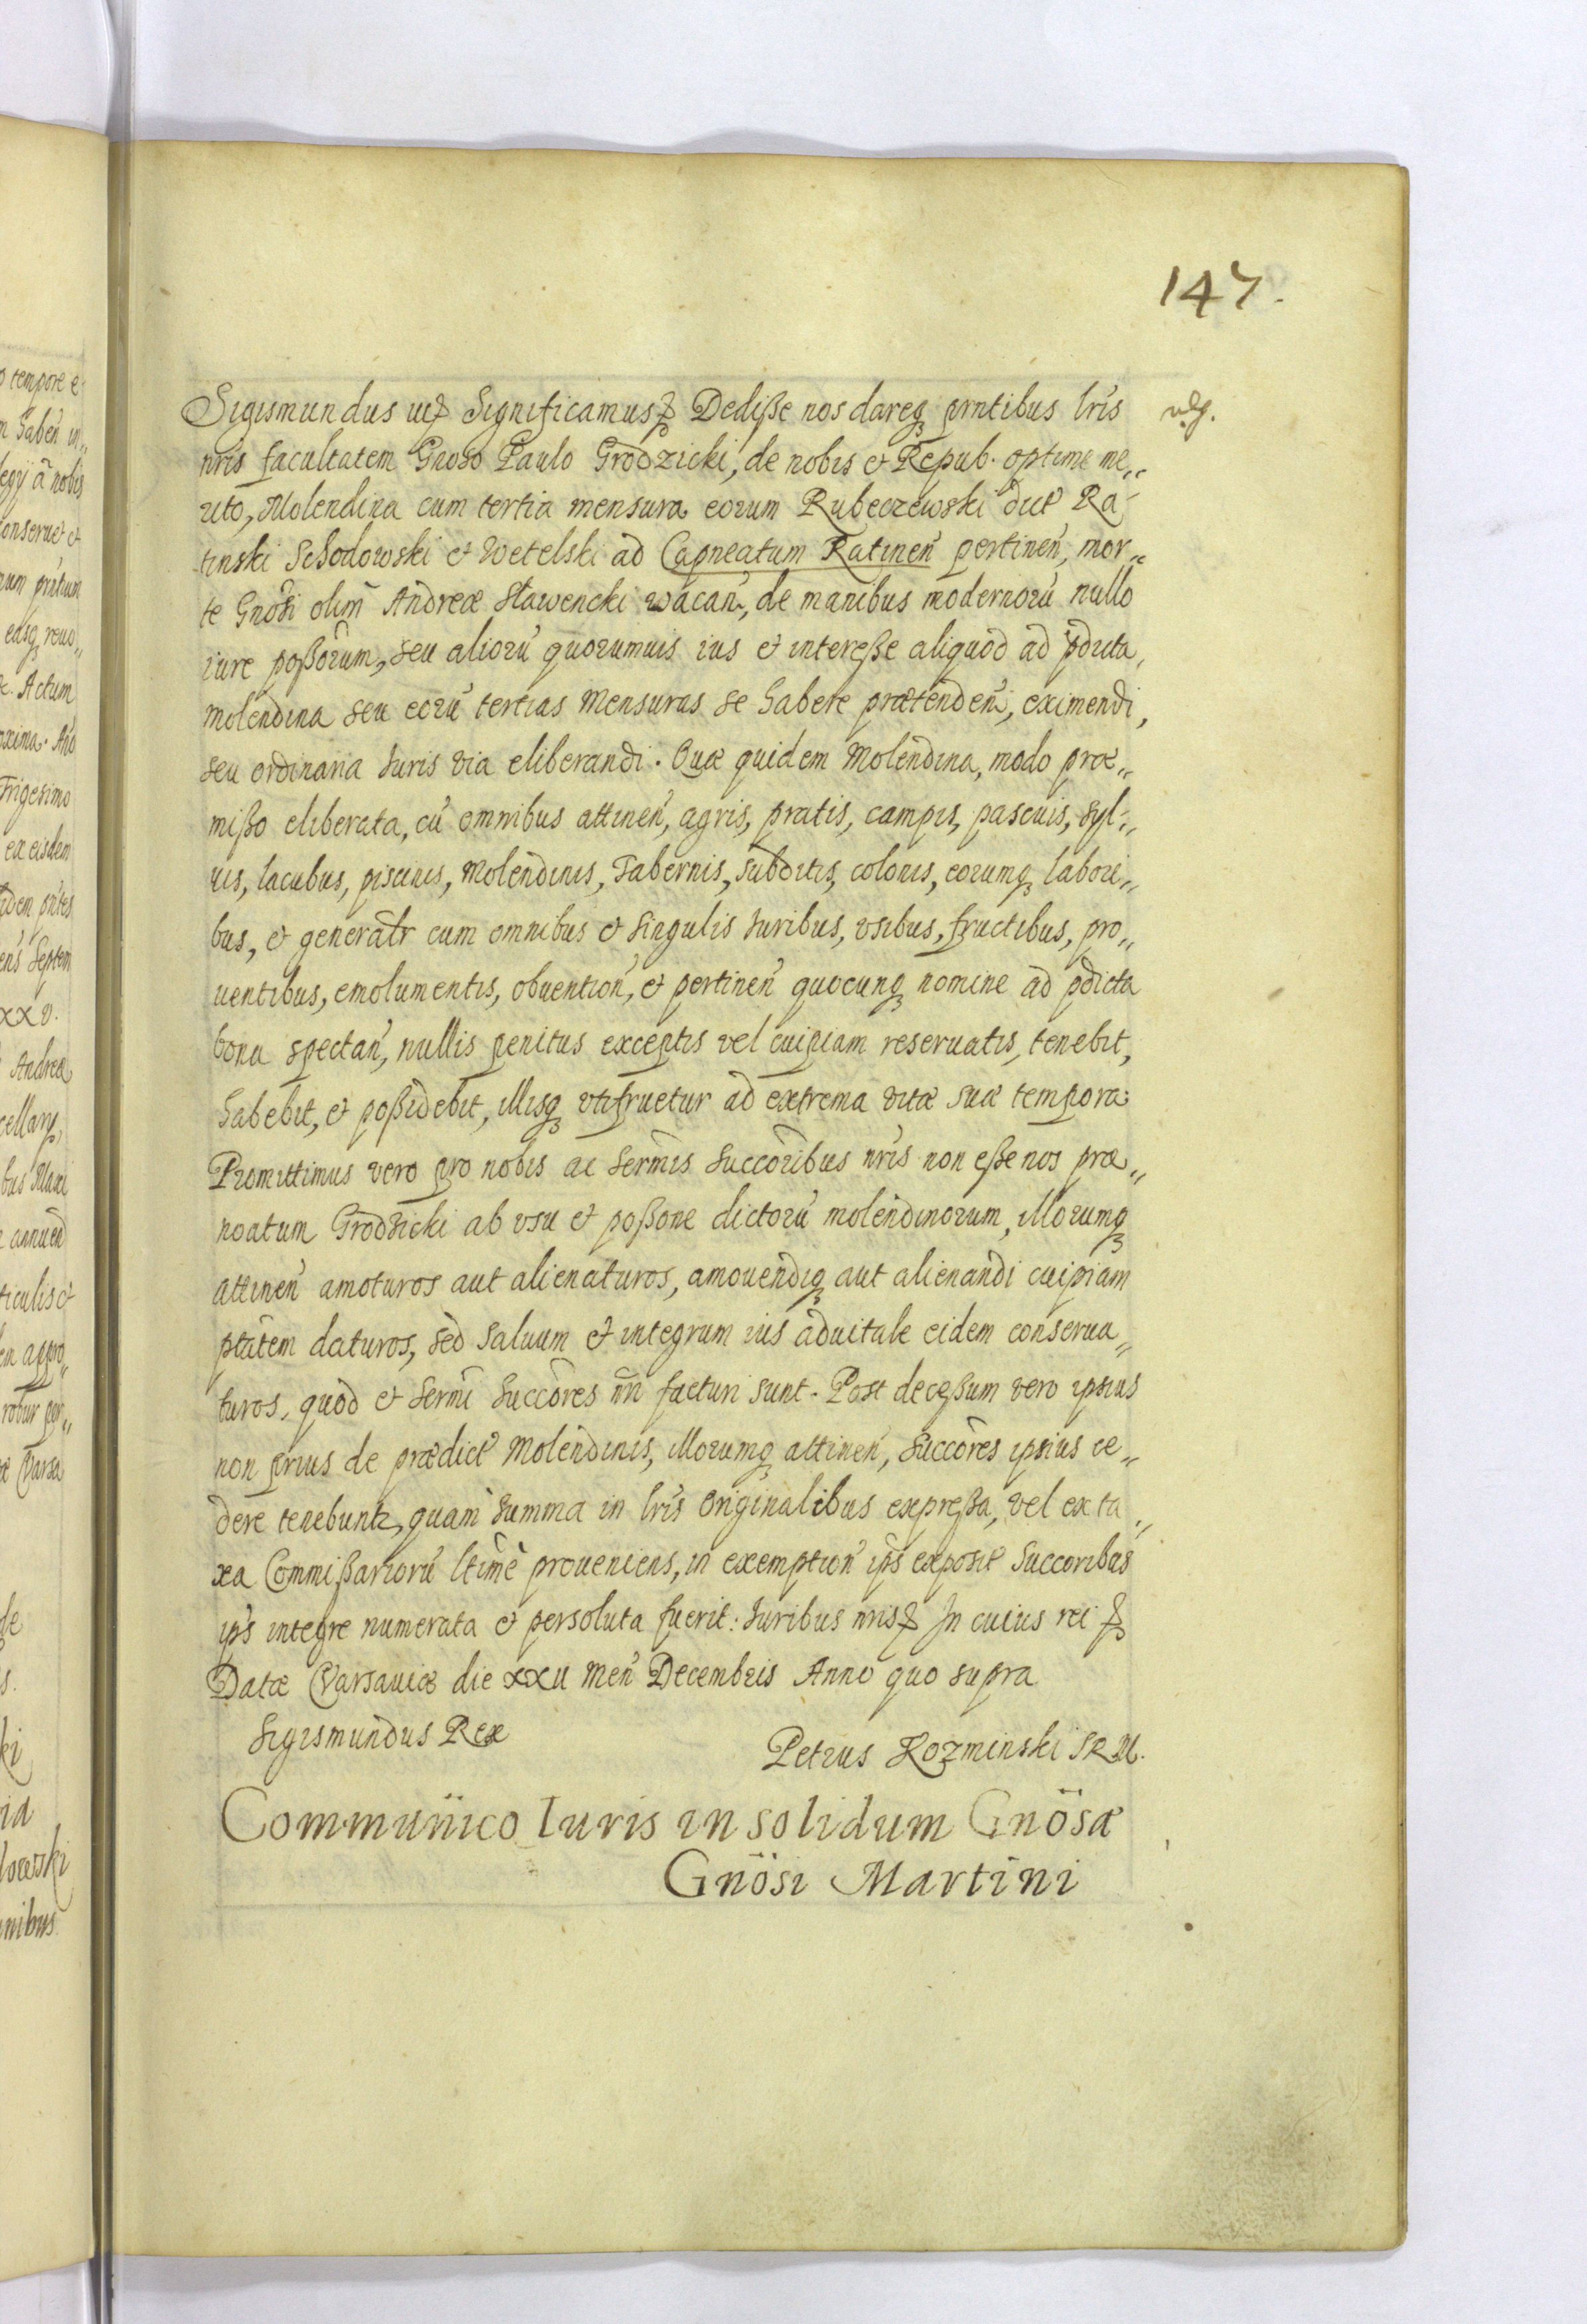 147.
Sigismundus Significamus Dediße nos dareq; prntibus lris
nris facultatem Gnoso Paulo Grodzicki, de nobis et Repub. optime me„
rito, Molendina cum tertia mensura eorum Rubeczewski dict Ra-
tinski Schodowski et Wetelski ad Capneatum Ratinen pertinen, mor„
te Gnosi olim Andreæ Stawencki wacan, de manibus modernorū nullo
iure poßorum, seu aliorū quorumuis ius et intereße aliquod ad pdicta,
molendina seu eorū tertias mensuras se habere prætenden, eximendi,
seu ordinaria Iuris via eliberandi. Quæ quidem Molendina, modo præ„
mißo eliberata, cū omnibus attinen, agris, pratis, campis, pascuis, syl„
uis, lacubus, piscinis, Molendinis, Tabernis, subditis, colonis, eorumq; labori„
bus, et generalr cum omnibus et singulis Iuribus, vsibus, fructibus, pro„
uentibus, emolumentis, obuention, et pertinen quocunq; nomine ad pdicta
bona spectan, nullis penitus exceptis vel cuipiam reseruatis, tenebit,
habebit, et poßidebit, illisq; vtifruetur ad extrema vitæ suæ tempora
Promittimus vero pro nobis ac sermis succoribus nris non eße nos præ„
noatum Grodzicki ab vsu et poßone dictorū molendinorum, illorumq;
attinen amoturos aut alienaturos, amouendiq; aut alienandi cuipiam
ptatem daturos, sed saluum et integrum ius aduitale eidem conserua„
turos, quod et sermi succores nri facturi sunt. Post deceßum vero ipsius
non prius de prædict Molendinis, illorumq; attinen, succores ipsius ce„
dere tenebuntr, quam summa in lris originalibus expreßa, vel ex ta„
xa Commißariorū ltime proueniens, in exemption ips exposit succoribus
ips integre numerata et persoluta fuerit: Iuribus nris In cuius rei
Datæ Varsauiæ die xxii Men Decembris Anno quo supra
Sigismundus Rex
Petrus Kozminski SRM.
Communico Iuris in solidum Gnosæ
Gnosi Martini